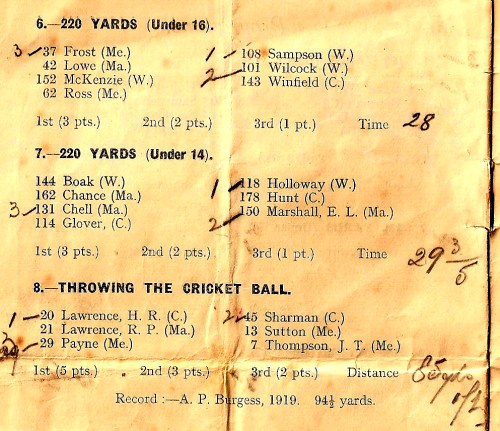 6.—220 YARDS (Under 16).
3 37 Frost (Me.) 1 108 Sampson (W.)
42 Lowe (Ma.) 2 101 Wilcock (W.)
152 McKenzie (W.) 143 Winfield (C.)
62 Ross (Me.)
1st (3 pts.) 2nd (2 pts.) 3rd (1 pt.) Time 28
7.—220 YARDS (Under 14).
144 Boak (W.) 1 118 Holloway (W.)
162 Chance (Ma.) 178 Hunt (C.)
3 131 Chell (Ma.) 2 150 Marshall, E. L. (Ma.)
114 Glover, (C.)
1st (3 pts.) 2nd (2 pts.) 3rd (1 pt.) Time 29 3/5
8.—THROWING THE CRICKET BALL.
1 20 Lawrence, H. R. (C.) 2 45 Sharman (C.)
21 Lawrence, R. P. (Ma.) 13 Sutton (Me.)
29 Payne (Me.) 7 Thompson, J. T. (Me.)
1st (5 pts.) 2nd (3 pts.) 3rd (2 pts.) Distance
Record :—A. P. Burgess, 1919. 94½ yards.